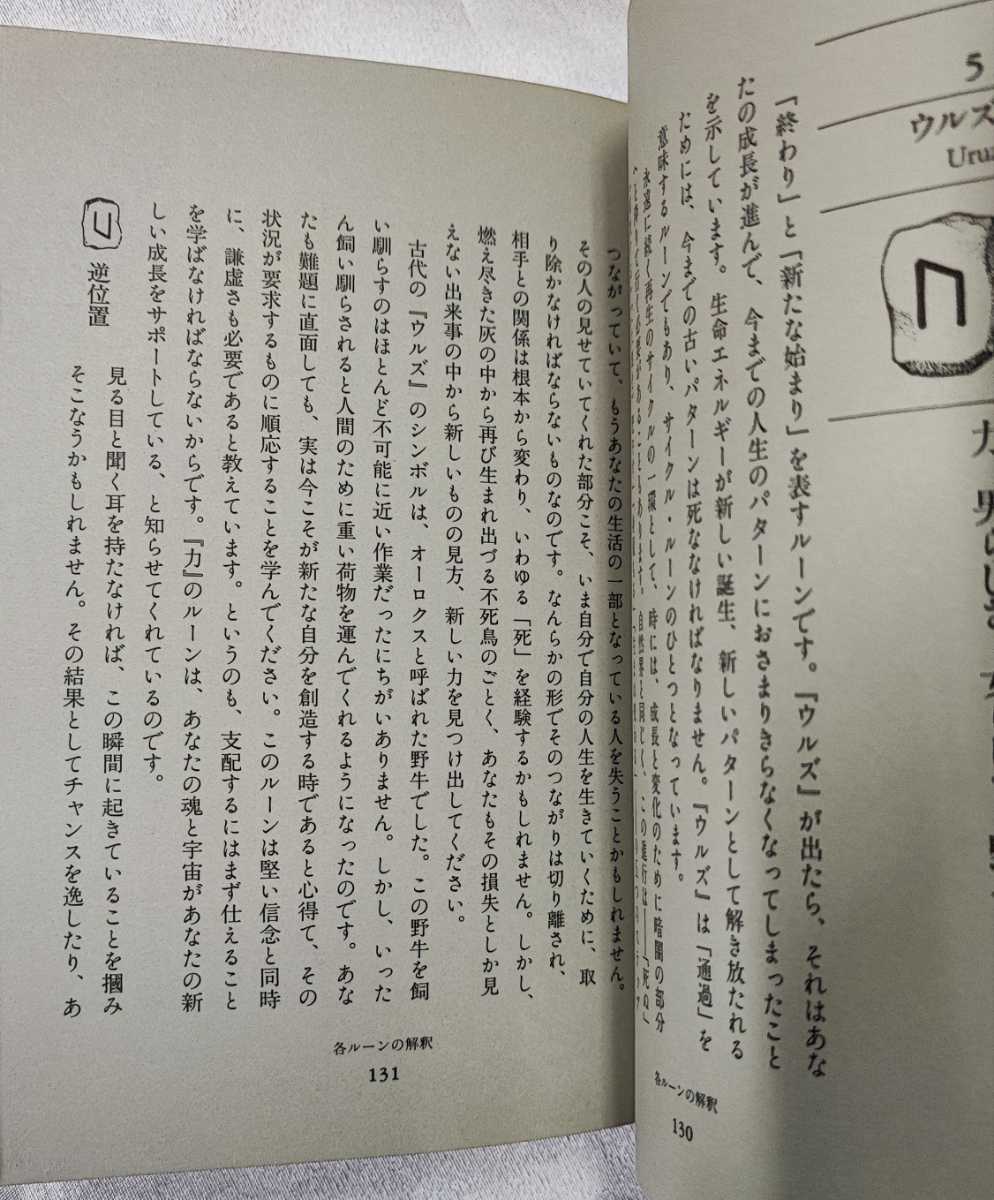 5
ウルズ
Uru
「終わり」と「新たな始まり」を表すルーンです。『ウルズ』が出たら、それはあな
たの成長が進んで、今までの人生のパターンにおさまりきらなくなってしまったこと
を示しています。生命エネルギーが新しい誕生、新しいパターンとして解き放たれる
ためには、今までの古いパターンは死ななければなりません。『ウルズ』は「通過」を
意味するルーンでもあり、サイクル・ルーンのひとつとなっています。
永遠に続く再生のサイクルの一環として、時には、成長と変化のために暗闇の部分
各ルーンの解釈
130
つながっていて、もうあなたの生活の一部となっている人を失うことかもしれません。
その人の見せていてくれた部分こそ、いま自分で自分の人生を生きていくために、取
り除かなければならないものなのです。なんらかの形でそのつながりは切り離され、
相手との関係は根本から変わり、いわゆる「死」を経験するかもしれません。しかし、
燃え尽きた灰の中から再び生まれ出づる不死鳥のごとく、あなたもその損失としか見
えない出来事の中から新しいものの見方、新しい力を見つけ出してください。
古代の『ウルズ』のシンボルは、オーロクスと呼ばれた野牛でした。この野牛を飼
い馴らすのはほとんど不可能に近い作業だったにちがいありません。しかし、いった
ん飼い馴らされると人間のために重い荷物を運んでくれるようになったのです。あな
たも難題に直面しても、実は今こそが新たな自分を創造する時であると心得て、その
状況が要求するものに順応することを学んでください。このルーンは堅い信念と同時
に、謙虚さも必要であると教えています。というのも、支配するにはまず仕えること
を学ばなければならないからです。『力』のルーンは、あなたの魂と宇宙があなたの新
しい成長をサポートしている、と知らせてくれているのです。
逆位置
見る目と聞く耳を持たなければ、この瞬間に起きていることを摑み
そこなうかもしれません。その結果としてチャンスを逸したり、あ
各ルーンの解釈
131